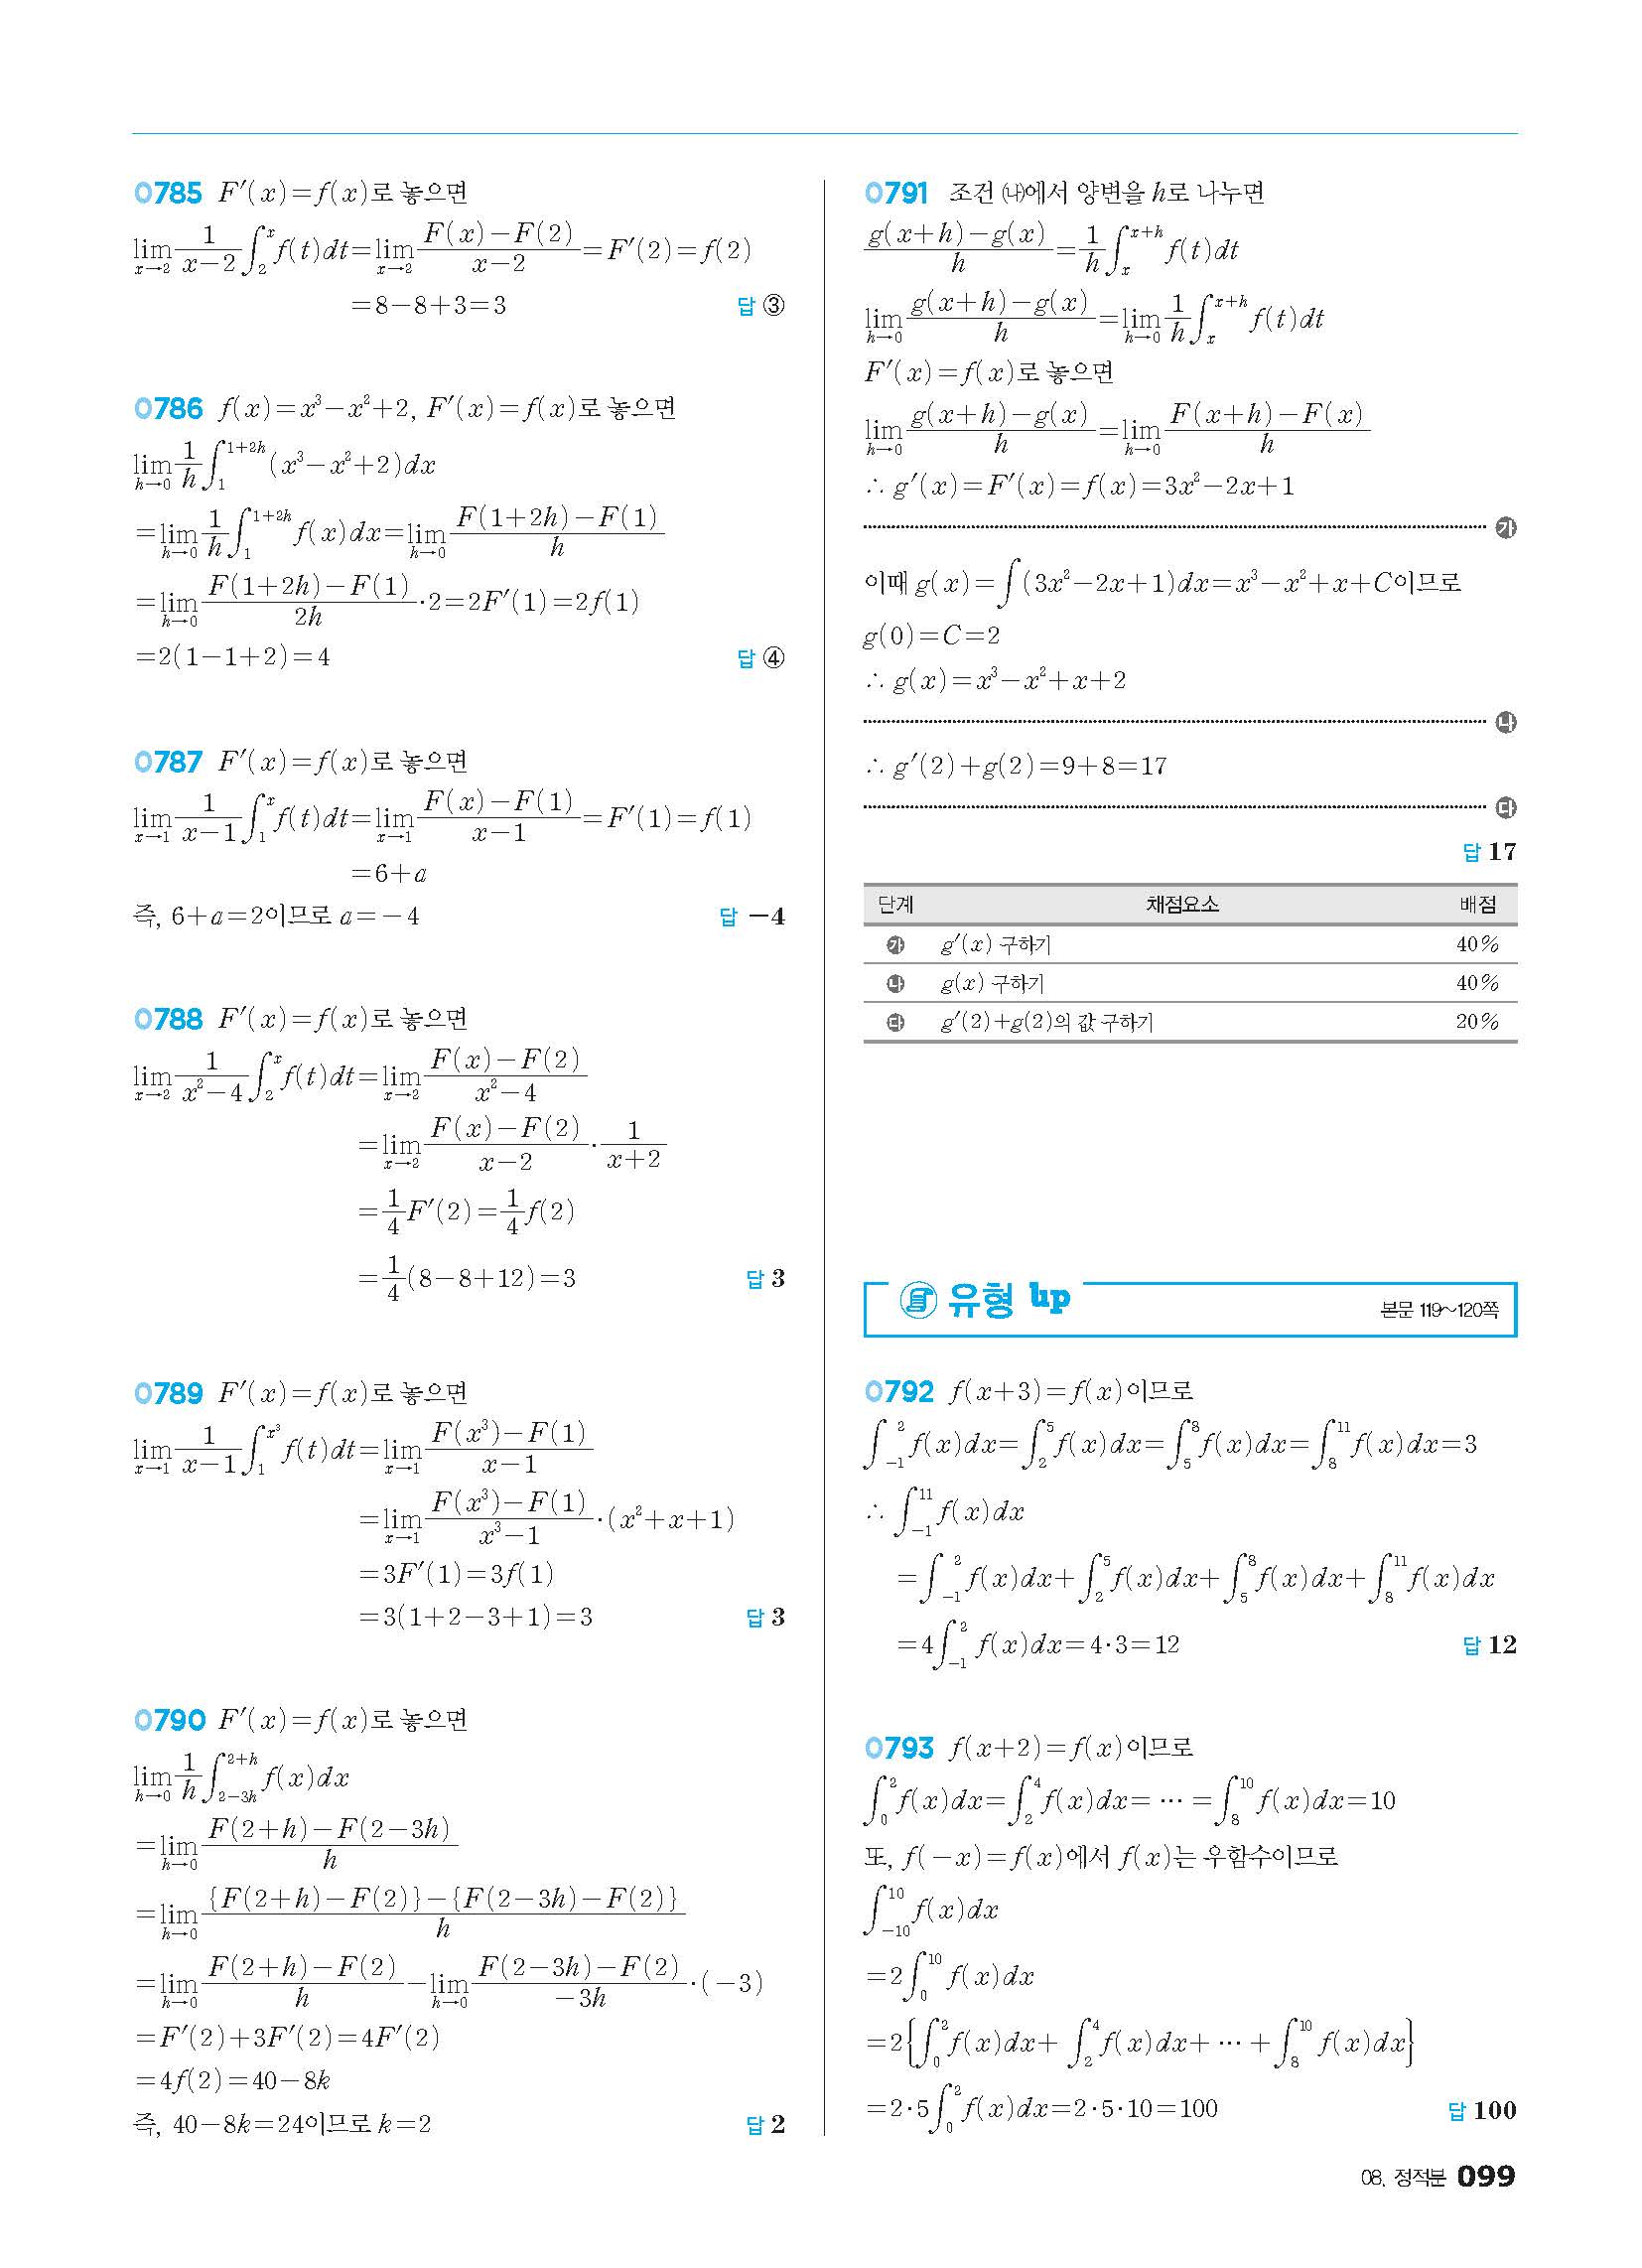 0785 F′(x)=f(x)로 놓으면
lim_{x→2} 1/(x−2) ∫_2^x f(t)dt=lim_{x→2} {F(x)−F(2)}/(x−2)=F′(2)=f(2)
=8−8+3=3 답 ③
0786 f(x)=x³−x²+2, F′(x)=f(x)로 놓으면
lim_{h→0} 1/h ∫_1^{1+2h} (x³−x²+2)dx
=lim_{h→0} 1/h ∫_1^{1+2h} f(x)dx=lim_{h→0} {F(1+2h)−F(1)}/h
=lim_{h→0} {F(1+2h)−F(1)}/2h·2=2F′(1)=2f(1)
=2(1−1+2)=4 답 ④
0787 F′(x)=f(x)로 놓으면
lim_{x→1} 1/(x−1) ∫_1^x f(t)dt=lim_{x→1} {F(x)−F(1)}/(x−1)=F′(1)=f(1)
=6+a
즉, 6+a=2이므로 a=−4 답 −4
0788 F′(x)=f(x)로 놓으면
lim_{x→2} 1/(x²−4) ∫_2^x f(t)dt=lim_{x→2} {F(x)−F(2)}/(x²−4)
=lim_{x→2} {F(x)−F(2)}/(x−2)·1/(x+2)
=1/4 F′(2)=1/4 f(2)
=1/4 (8−8+12)=3 답 3
0789 F′(x)=f(x)로 놓으면
lim_{x→1} 1/(x−1) ∫_1^{x³} f(t)dt=lim_{x→1} {F(x³)−F(1)}/(x−1)
=lim_{x→1} {F(x³)−F(1)}/(x³−1)·(x²+x+1)
=3F′(1)=3f(1)
=3(1+2−3+1)=3 답 3
0790 F′(x)=f(x)로 놓으면
lim_{h→0} 1/h ∫_{2−3h}^{2+h} f(x)dx
=lim_{h→0} {F(2+h)−F(2−3h)}/h
=lim_{h→0} [{F(2+h)−F(2)}−{F(2−3h)−F(2)}]/h
=lim_{h→0} {F(2+h)−F(2)}/h−lim_{h→0} {F(2−3h)−F(2)}/(−3h)·(−3)
=F′(2)+3F′(2)=4F′(2)
=4f(2)=40−8k
즉, 40−8k=24이므로 k=2 답 2
0791 조건 ㈏에서 양변을 h로 나누면
{g(x+h)−g(x)}/h=1/h ∫_x^{x+h} f(t)dt
lim_{h→0} {g(x+h)−g(x)}/h=lim_{h→0} 1/h ∫_x^{x+h} f(t)dt
F′(x)=f(x)로 놓으면
lim_{h→0} {g(x+h)−g(x)}/h=lim_{h→0} {F(x+h)−F(x)}/h
∴ g′(x)=F′(x)=f(x)=3x²−2x+1
가
이때 g(x)=∫(3x²−2x+1)dx=x³−x²+x+C이므로
g(0)=C=2
∴ g(x)=x³−x²+x+2
나
∴ g′(2)+g(2)=9+8=17
다
답 17
단계 채점요소 배점
가 g′(x) 구하기 40%
나 g(x) 구하기 40%
다 g′(2)+g(2)의 값 구하기 20%
유형 up 본문 119~120쪽
0792 f(x+3)=f(x)이므로
∫_{−1}^2 f(x)dx=∫_2^5 f(x)dx=∫_5^8 f(x)dx=∫_8^{11} f(x)dx=3
∴ ∫_{−1}^{11} f(x)dx
=∫_{−1}^2 f(x)dx+∫_2^5 f(x)dx+∫_5^8 f(x)dx+∫_8^{11} f(x)dx
=4∫_{−1}^2 f(x)dx=4·3=12 답 12
0793 f(x+2)=f(x)이므로
∫_0^2 f(x)dx=∫_2^4 f(x)dx= ⋯ =∫_8^{10} f(x)dx=10
또, f(−x)=f(x)에서 f(x)는 우함수이므로
∫_{−10}^{10} f(x)dx
=2∫_0^{10} f(x)dx
=2{∫_0^2 f(x)dx+∫_2^4 f(x)dx+ ⋯ +∫_8^{10} f(x)dx}
=2·5∫_0^2 f(x)dx=2·5·10=100 답 100
08. 정적분 099